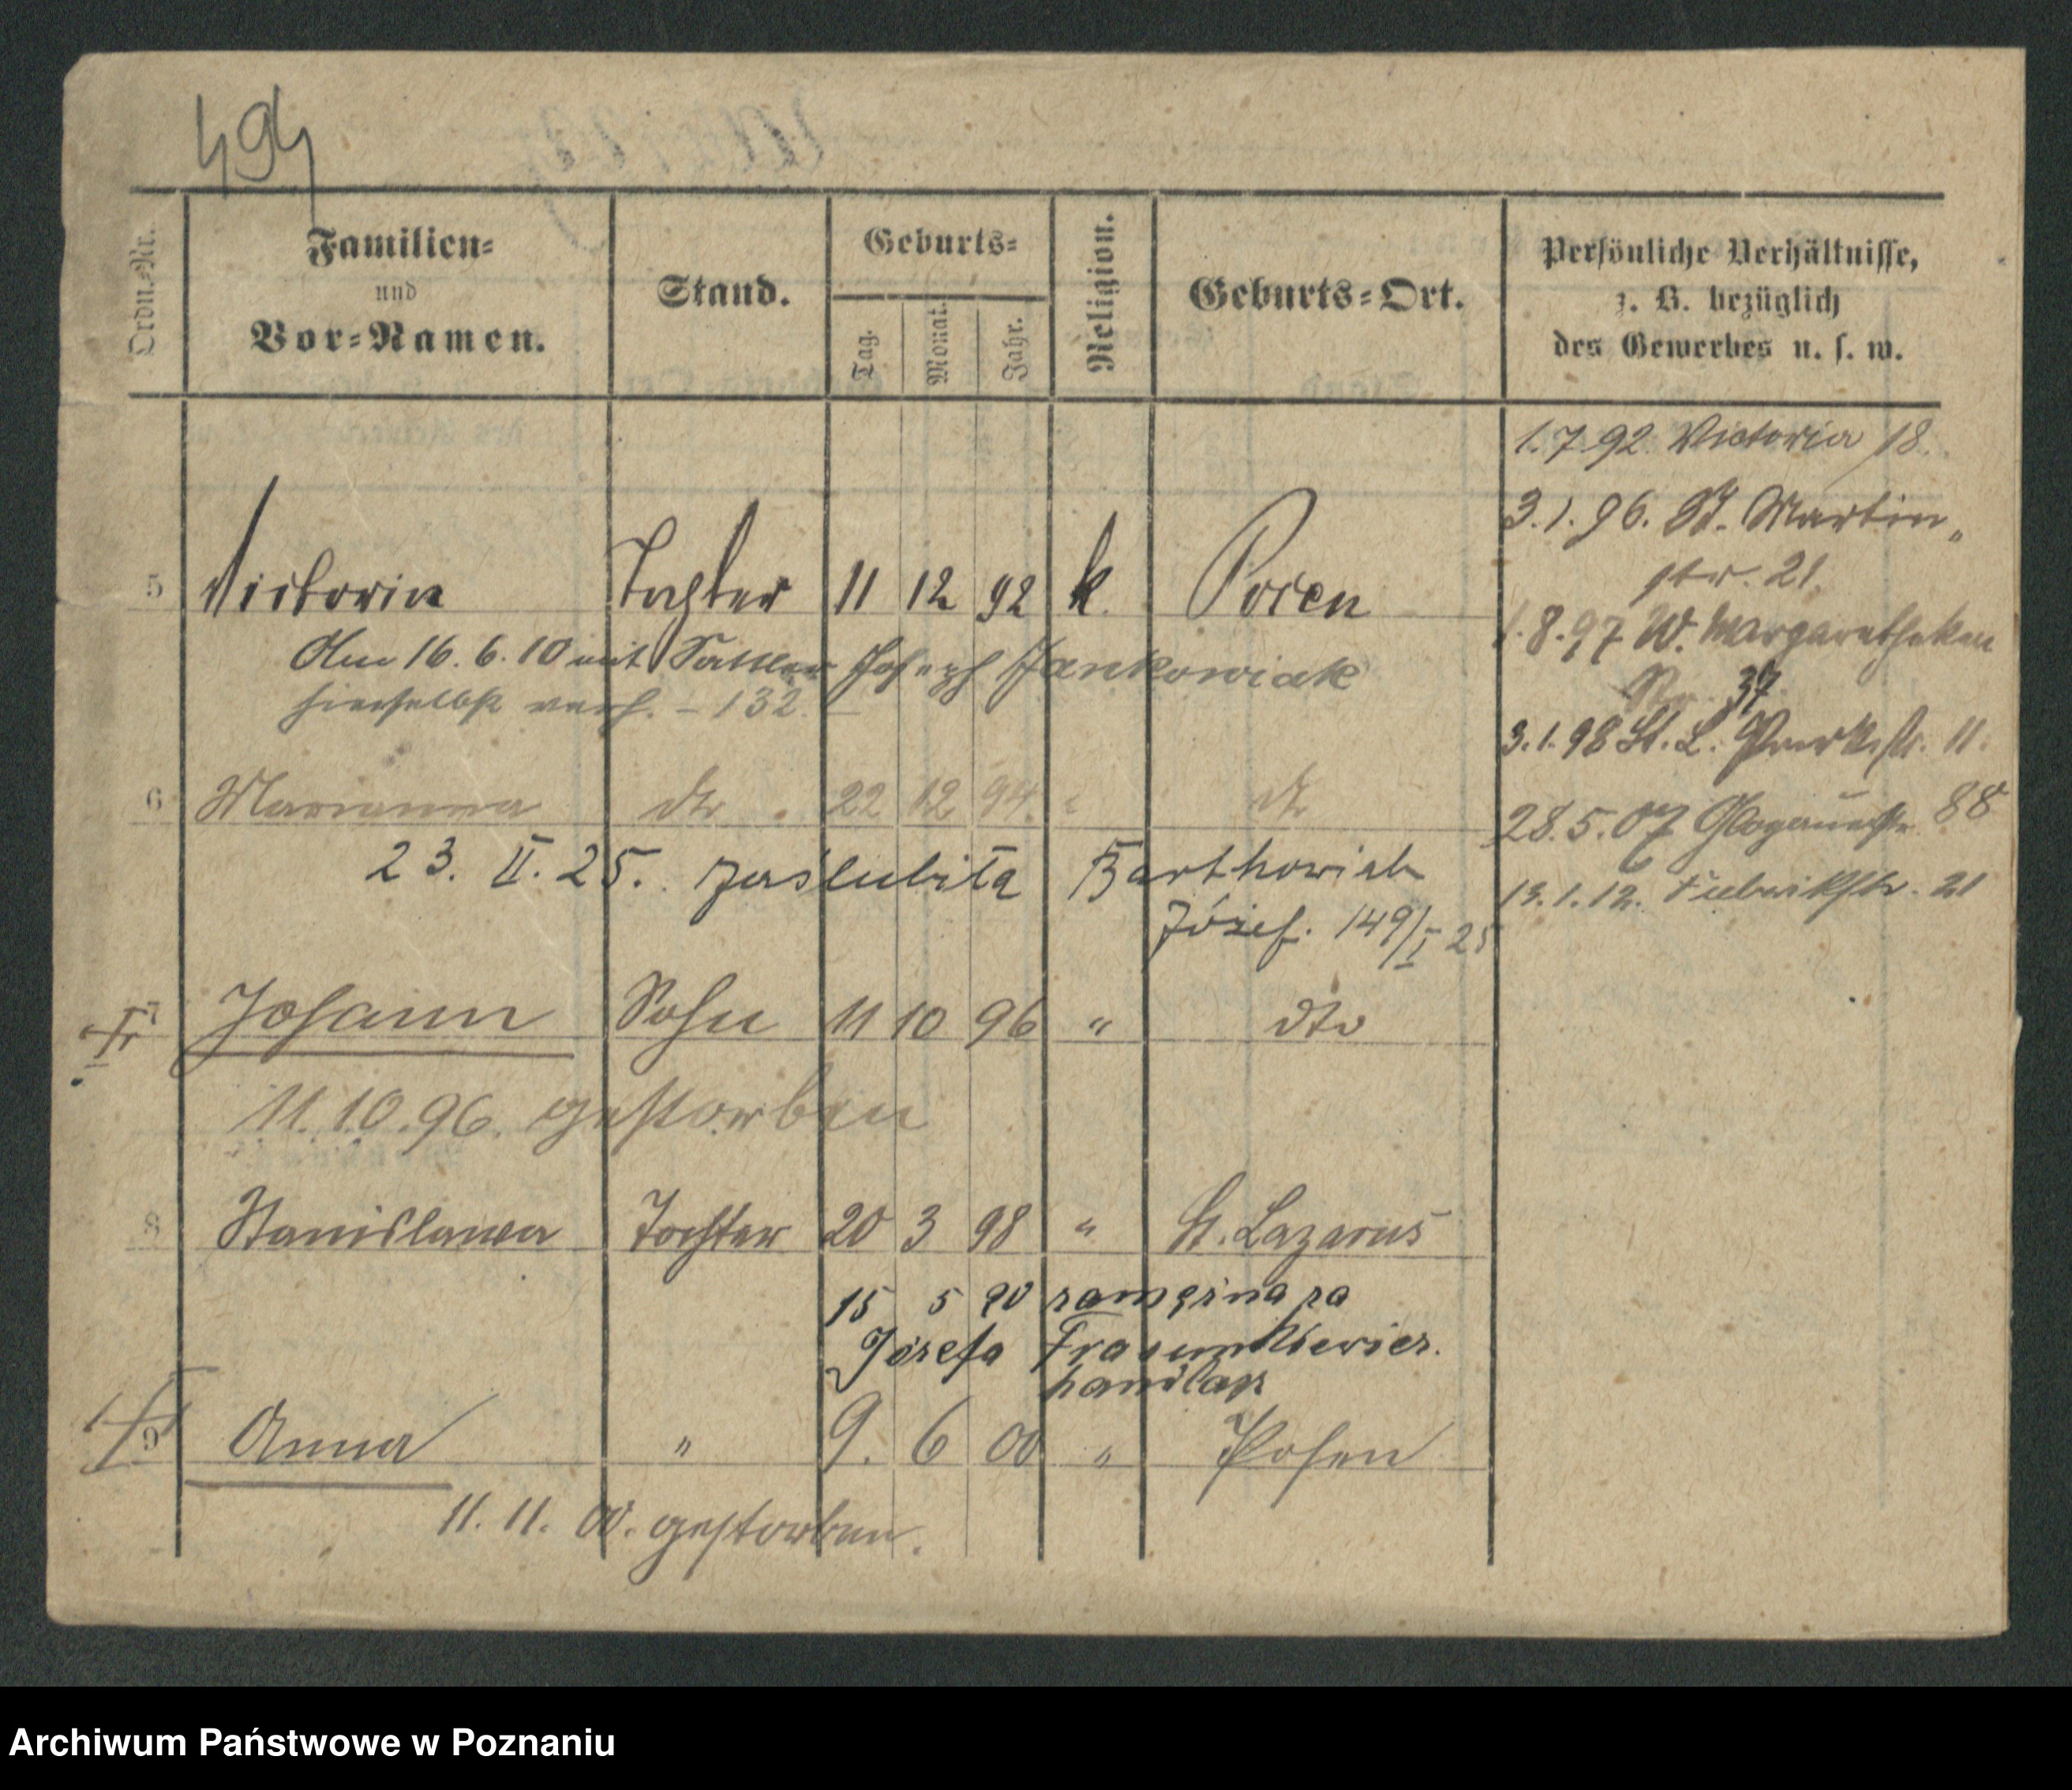 494
Ordn.-Nr.
Familien-
und
Vor-Namen.
Stand.
Geburts-
Tag.
Monat.
Jahr.
Religion.
Geburts-Ort.
Persönliche Verhältnisse,
z. B. bezüglich
des Gewerbes u. s. w.
1.7.92. Victoria 18.
3.1.96. St. Martin
str. 21.
5 Victoria Tochter 11 12 92 k. Posen
1.8.97 W. Margarethen
Am 16.6.10 mit Sattler Joseph Jankowiak
37
hierselbst verh. – 132. –
3.1.98 St. L. Parkstr. 11.
6 Marianna dto 22 12 94. " dto
28.5.07 Glogauerstr 88
23. II. 25. zaślubiła Barthowiak
13.1.12. 21
Józef. 149/I 25
7 Johann Sohn 11 10 96 " dto
11.10.96. gestorben
8 Stanislawa Tochter 20 3 98 " St. Lazarus
15 5 20 zamężna za
Józefa Frasunkiewicz.
handlarz
9 Anna " 9. 6 00 " Posen
11. 11. 00. gestorben.
Archiwum Państwowe w Poznaniu